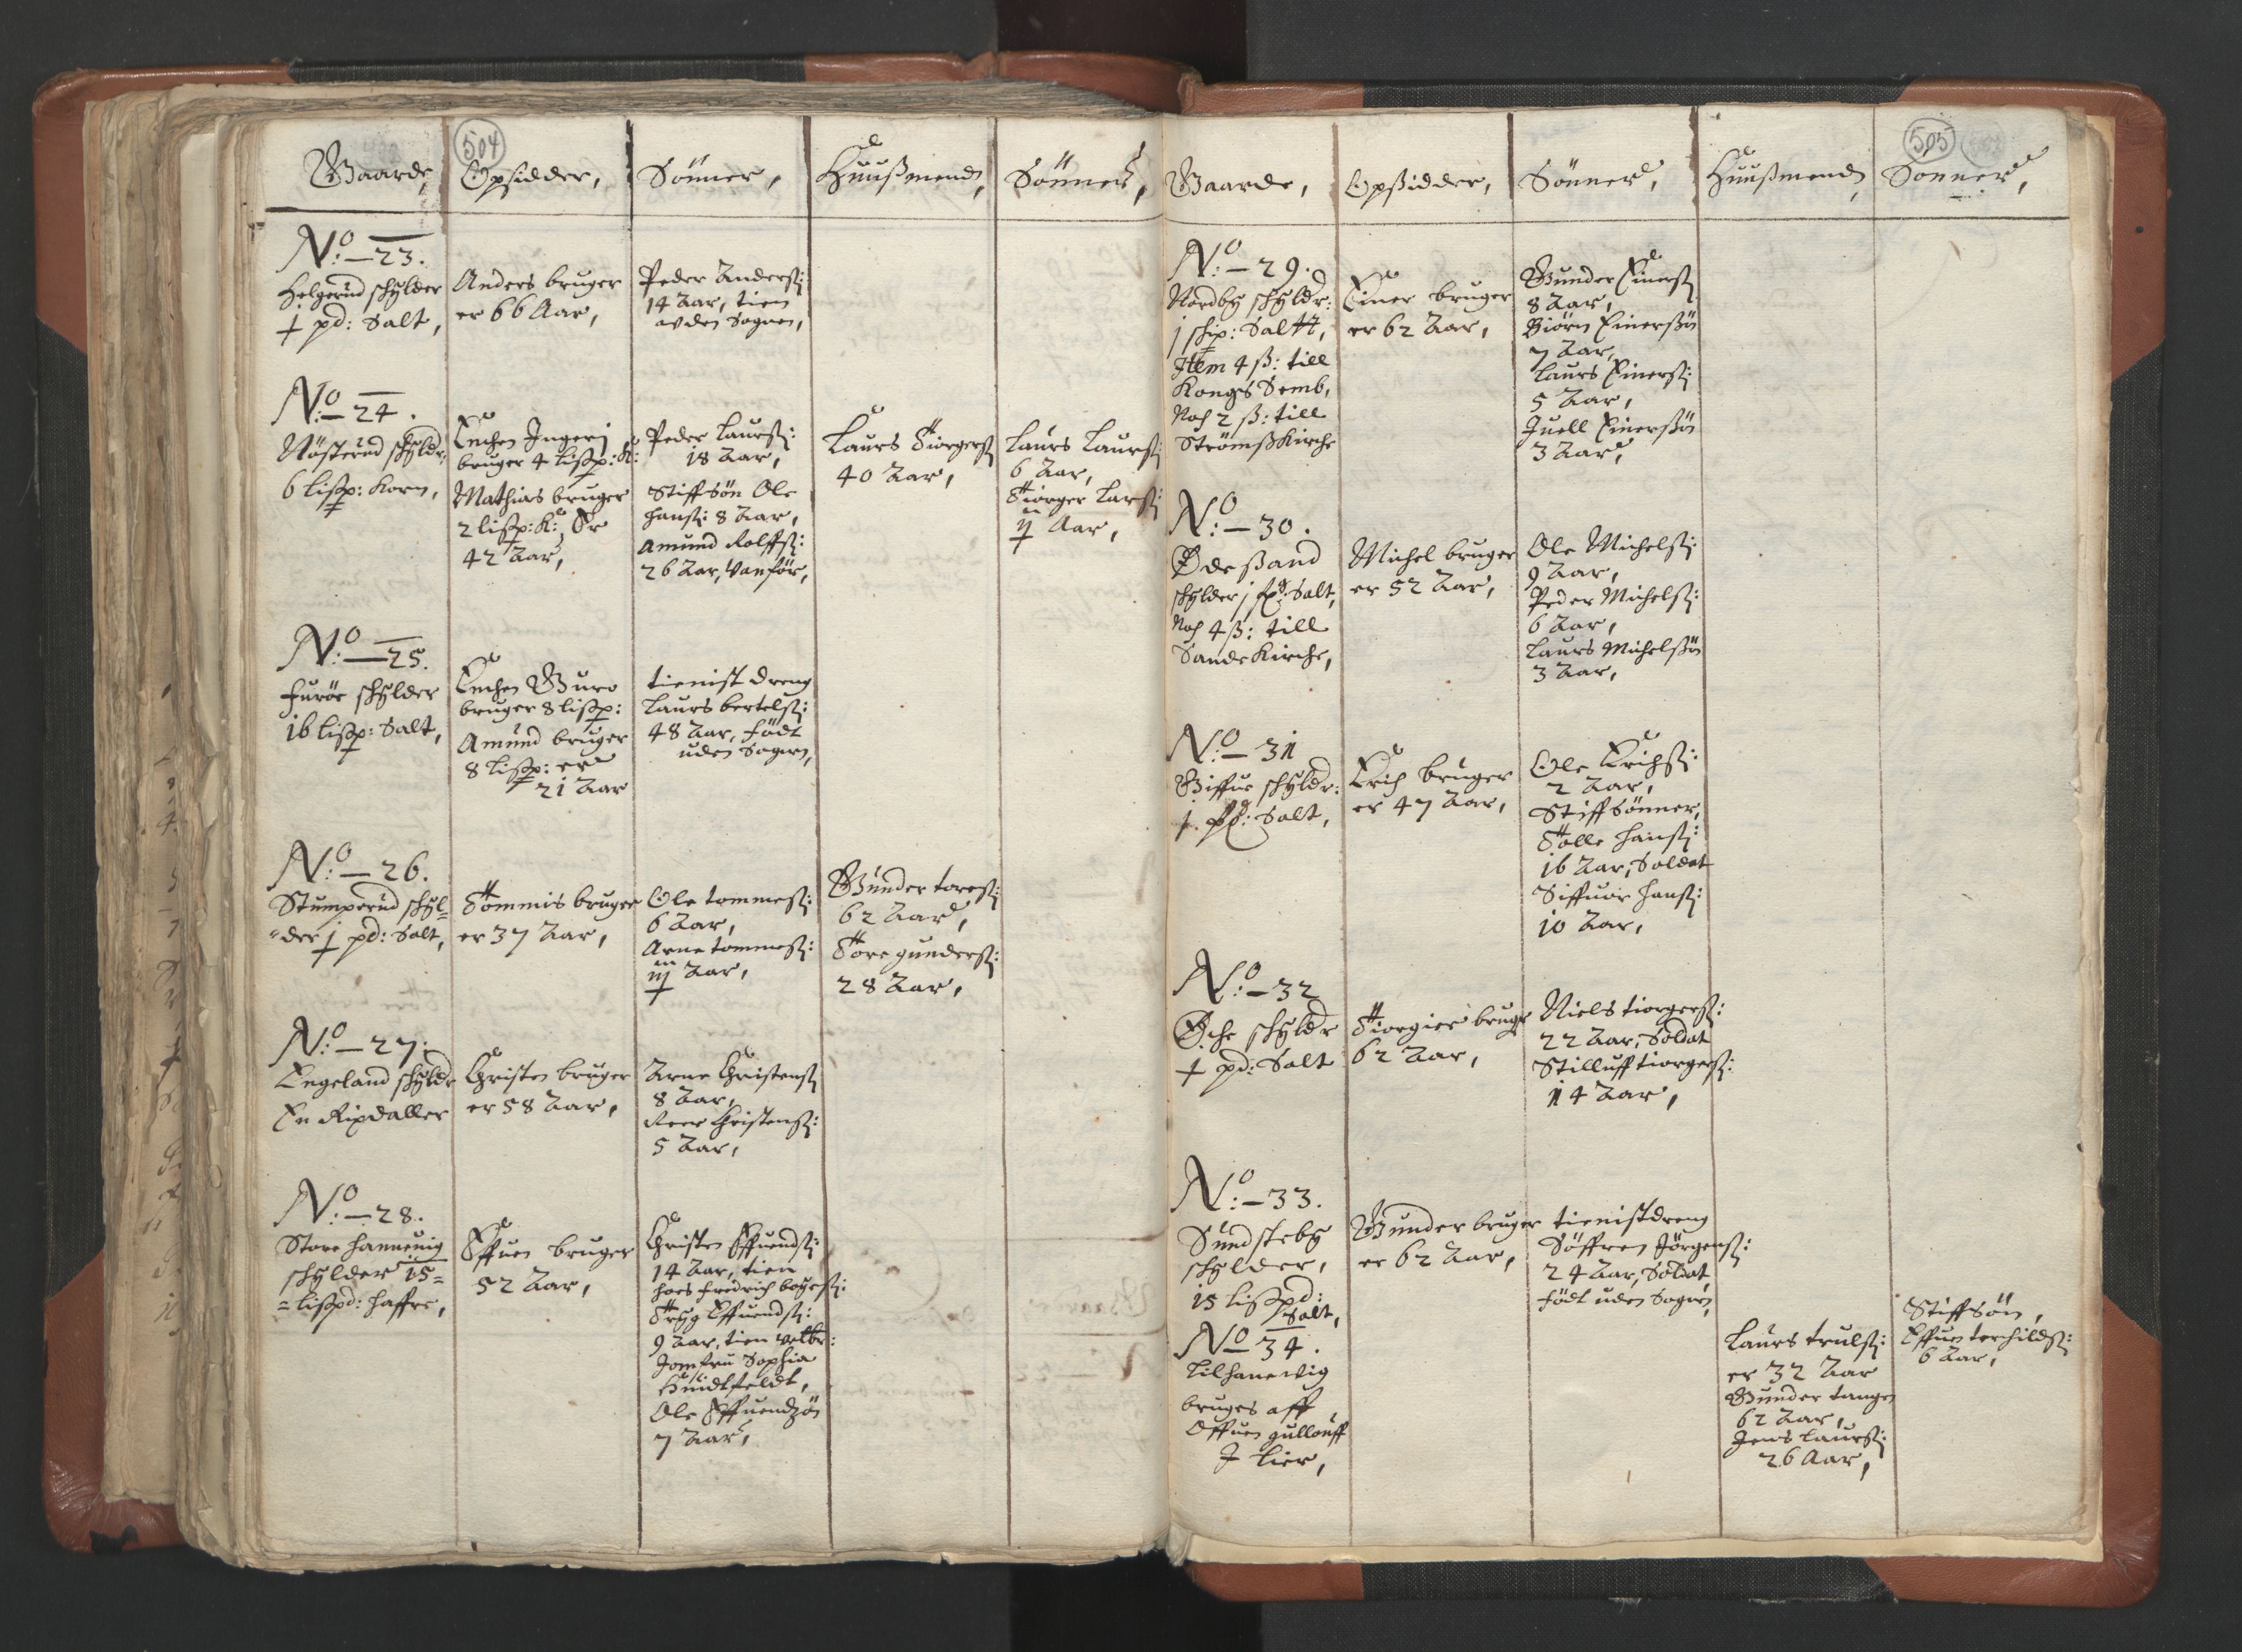 504
Gaarde, Opsidder, Sönner, Huußmend, Sönner,
No: 23.
Helgerud schylder
½ pd: Salt,
Anders bruger
er 66 Aar,
Peder Anderß:
14 Aar, tien
uden Sognen,
No: 24.
Nösterud schyldr:
6 lißp: Korn,
Enchen Ingeri
bruger 4 lißp: K:
Mathias bruger
2 lißp: K: Er
42 Aar,
Peder Laurß:
18 Aar,
Stiffsön Ole
Hanß: 8 Aar,
Amund Rolffß:
26 Aar, Vanför,
Laurs Tiorgerß
40 Aar,
Laurs Laurß:
6 Aar,
Tiorger Larß:
Aar,
No: 25.
Furöe schylder
16 lißp: Salt,
Enchen Guro
bruger 8 lißp:
Amund bruger
8 lißp: er
21 Aar
tienist dreng
Laurs bertelß:
48 Aar, Födt
uden Sognen,
No: 26.
Stumperud schyl=
=der j pd: Salt,
Tommis bruger
er 37 Aar,
Ole tommeß:
6 Aar,
Arne tommeß:
iij Aar,
Gunder toreß:
62 Aar,
Tore gunderß:
28 Aar,
No: 27:
Engeland schyldr
En Rixdaller
Christen bruger
er 58 Aar,
Arne Christenß
8 Aar,
Reer Christenß:
5 Aar,
No: 28.
Store Hannevig
schylder 15=
=lißpd: Haffre,
Effuen bruger
52 Aar,
Christen Effuendß:
14 Aar, tien
hoes Fridrich boyeß:
Tryg Effuendß:
9 Aar, tien velbr:
Jomfru Sophia
Huidtfeldt,
Ole Effuendzön
7 Aar,
505
Gaarde, Opsidder, Sönner, Huußmend, Sönner,
No: 29.
Nordby schyldr:
j schip: Saltt,
Item 4 ß: till
Kongs Semb,
Noch 2 ß: till
Strömß Kirche
Einer bruger
er 62 Aar,
Gunder Einerß
8 Aar,
Biörn Einerßön
7 Aar,
Laurs Einerß:
5 Aar,
Juell Einerßön
3 Aar,
No: 30.
Ödeßand
schylder j ß℔: Salt,
Noch 4 ß: till
Sande Kirche,
Michel bruger
er 52 Aar,
Ole Michelß:
9 Aar,
Peder Michelß:
6 Aar,
Laurs Michelßön
3 Aar,
No: 31
Giffue schyldr:
j. pd: Salt,
Erich bruger
er 47 Aar,
Ole Erichß:
2 Aar,
Stiffsönner,
Tolle Hanß:
16 Aar, Soldat
Siffuor Hanß:
10 Aar,
No: 32
Öche schyldr
½ pd: Salt
Tiorgier bruger
62 Aar,
Niels tiorgerß:
22 Aar, Soldat
Stilluff tiorgerß:
14 Aar,
No: 33.
Sundsteby
schylder,
15 lißpd:
Salt,
Gunder bruger
er 62 Aar,
tienistdreng
Söffren Jörgenß:
24 Aar, Soldat,
Födt uden Sognen,
No 34.
Lilhanevig
bruges aff
Offuen gullouff
J Lier,
Laurs trulß:
er 32 Aar
Gunder tangen
62 Aar,
Jens Laurß:
26 Aar,
Stiffsön,
Effuen terchildß:
6 Aar,